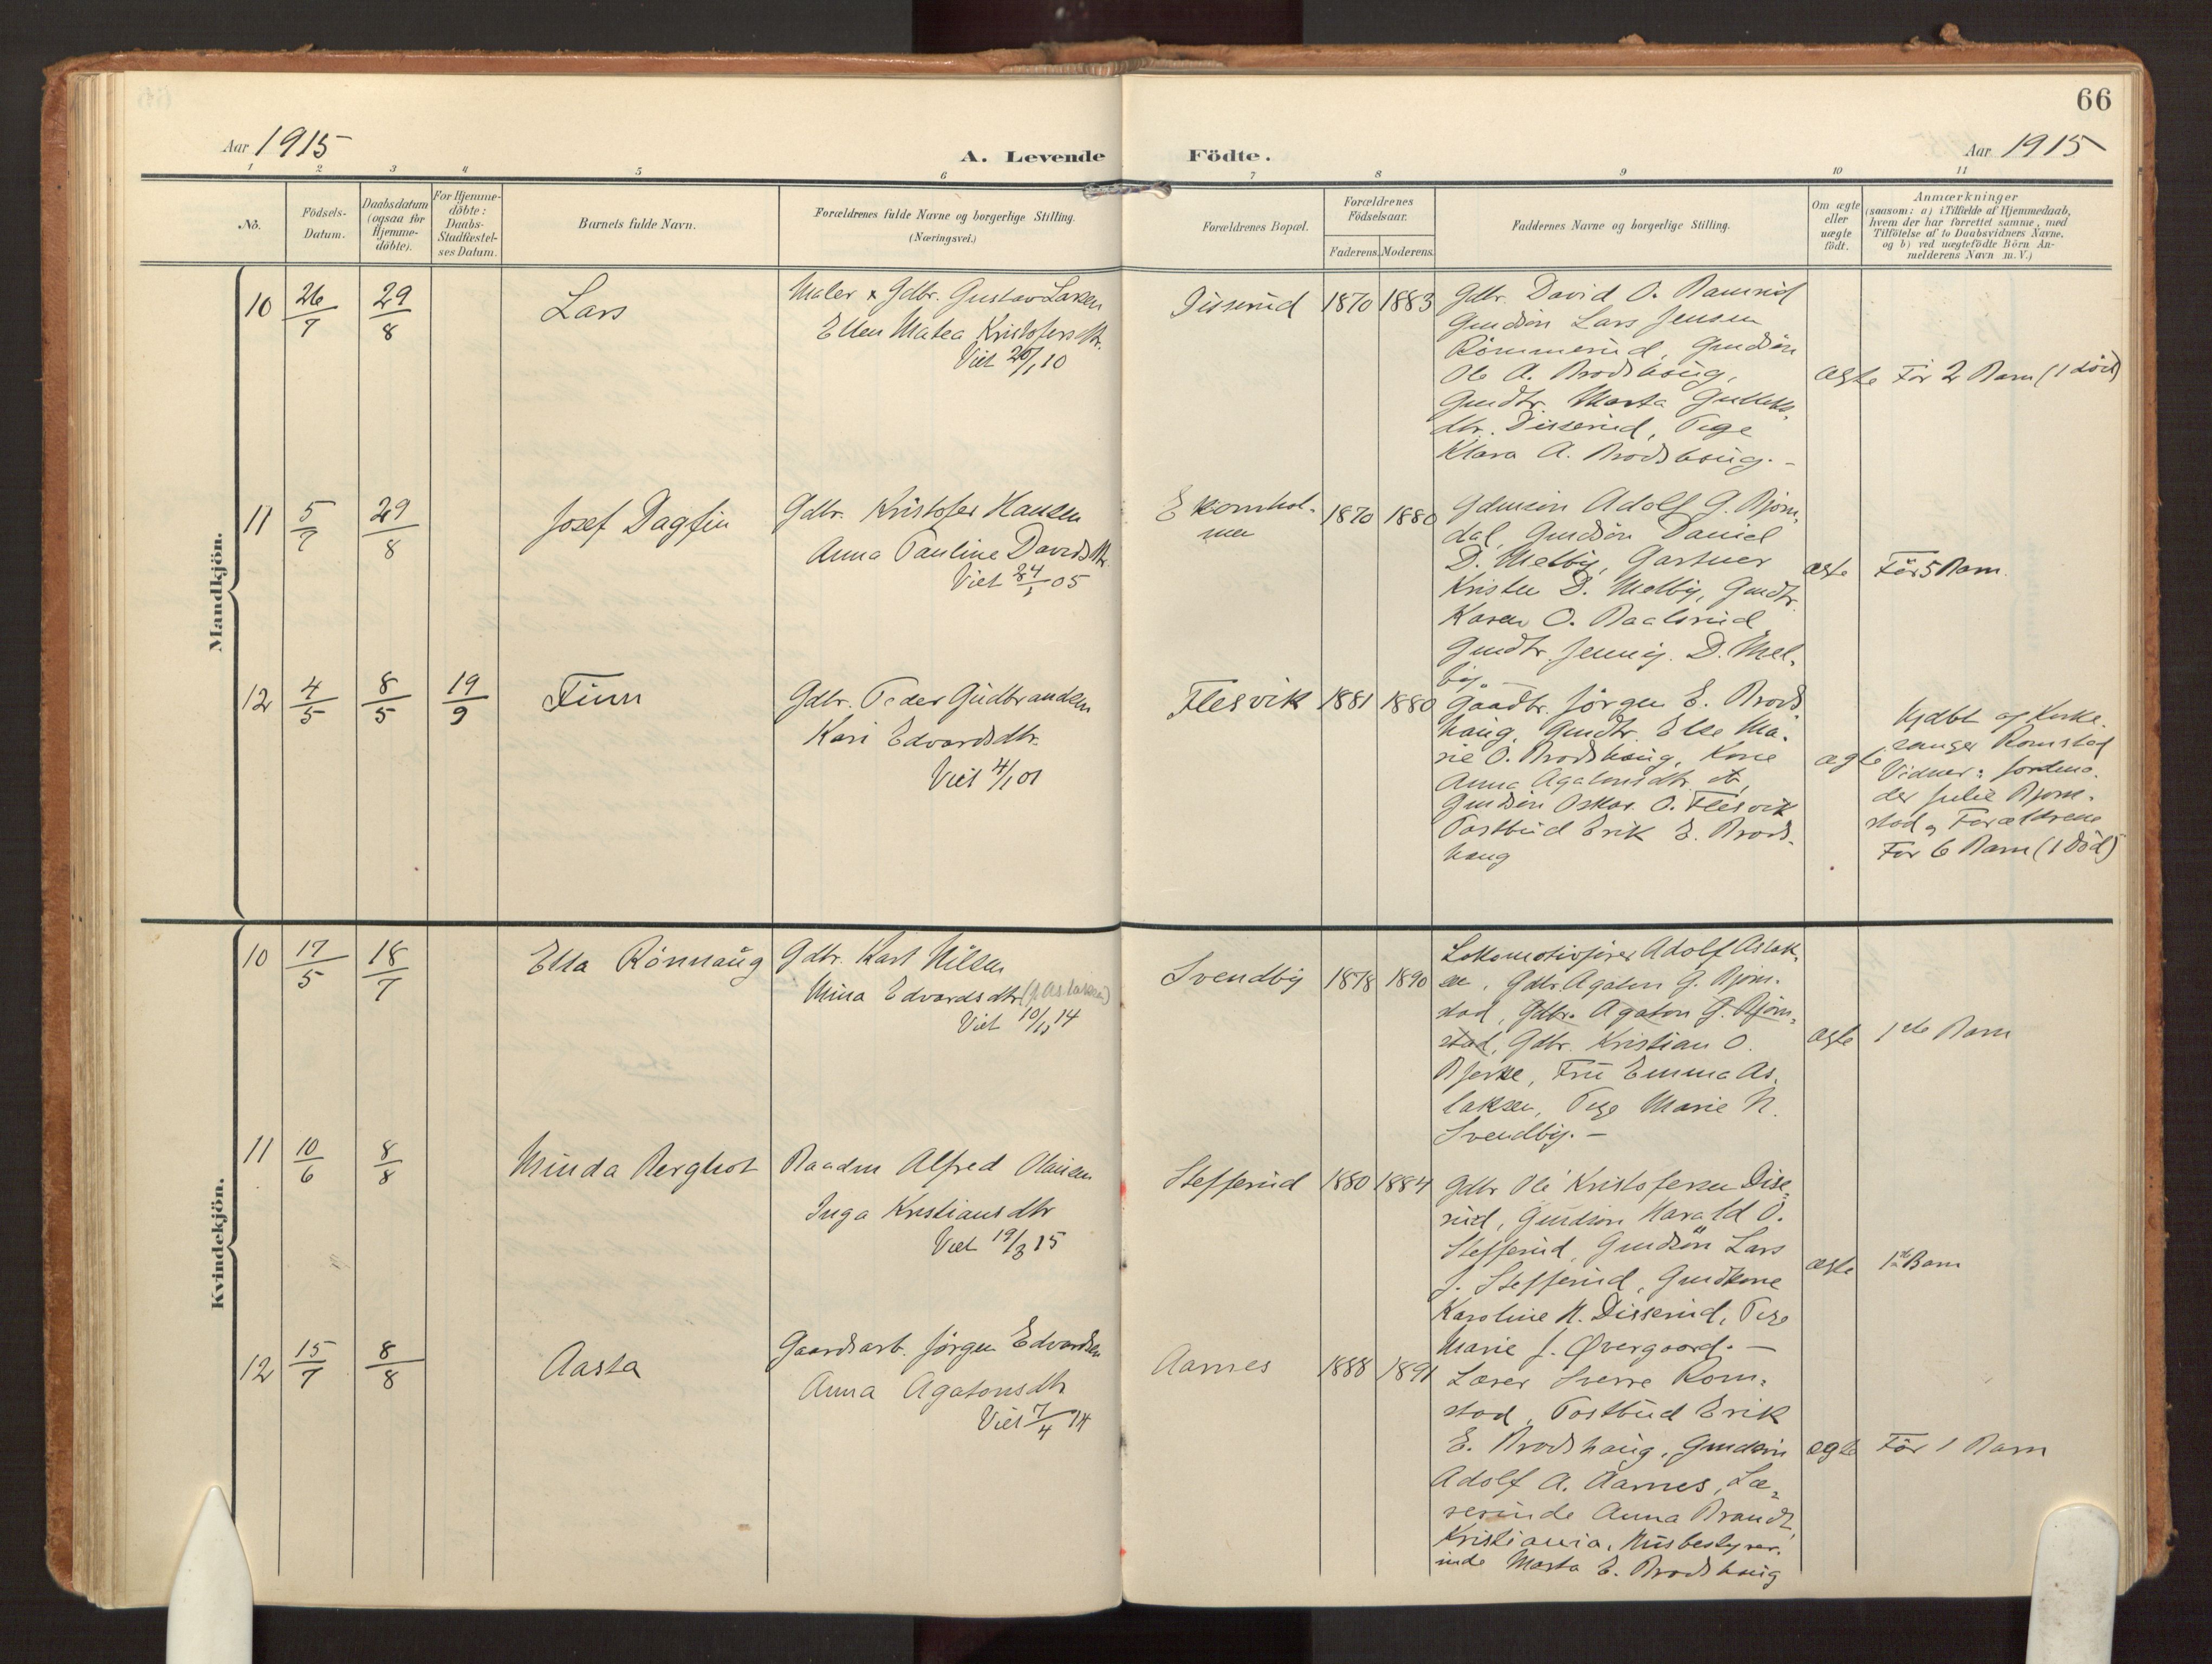 66
Aar 1915
A. Levende Födte.
Aar 1915
1 2 3 4 5 6 7 8 9 10 11
No.
Födsels-
Datum.
Daabsdatum
(ogsaa for
Hjemme-
döbte).
For Hjemme-
döbte:
Daabs-
Stadfæstel-
ses Datum.
Barnets fulde Navn.
Forældrenes fulde Navne og borgerlige Stilling.
(Næringsvei.)
Forældrenes Bopæl.
Forældrenes
Födselsaar.
Faderens. Moderens.
Faddernes Navne og borgerlige Stilling.
Om ægte
eller
uægte
født.
Anmærkninger
(saasom: a) i Tilfælde af Hjemmedaab,
hvem der har forrettet samme, med
Tilföielse af to Daabsvidners Navne,
og b) ved uægtefödte Börn An-
melderens Navn m. V.)
Mandkjön.
10 26/7 29/8
Lars
Maler & Gdbr. Gustav Larsen
Ellen Matea Kristofersdtr.
Viet 10
Disserud
1870 1883
Gdbr. David O. Ramrud
Gmdsön Lars Jensen
Römmerud, Gmdsön
Ole A. Brodshaug,
Gmdtr. Marta Gulliks-
dtr. Disserud, Pige
Klara A. Brodshaug. -
ægte
För 2 Barn (1 död)
11 5/7 29/8
Josef Dagfin
Gdbr. Kristofer Hansen
Anna Pauline Davidsdtr.
Viet 05
Ekornhol-
men
1870 1880
Adolf G. Bjørn-
dal, Gmdsön Daniel
D. Melby, Gartner
Kristen D. Melby, Gmdtr.
Karen O. Baalsrud
Gmdtr. Jenny D. Mel-
by. -
ægte
För 5 Barn.
12 4/5 8/5 19/9
Finn
Gdbr. Peder Gudbrandsen
Kari Edvardsdtr.
Viet 4/1 01
Flesvik
1881 1880
Gaardbr. Jörgen E. Brods
haug, Gmdtr. Else Ma-
rie O. Brodshaug, Kone
Anna Agatonsdtr.
Gmdsön Oskar O. Flesvik
Postbud Erik E. Brods-
haug
ægte
Hjdbt af Kirke-
sanger Romstad
Vidner: Jordmo-
der Julie Bjørn-
stad og Forældrene
För 6 Barn (1 Död)
Kvindekjön.
10 17/5 18/7
Elsa Rönnaug
Gdbr. Karl Nilsen
Mina Edvardsdtr. (f. Aslaksen)
Viet 10/11 14
Svendby
1878 1890
Lokomotivfører Adolf Aslak-
sen, Gdbr. Agaton G. Bjørn-
stad, Gdbr. Agaton G. Bjørn-
stad, Gdbr. Kristian O.
Bjerke, Fru Emma As-
laksen, Pige Marie N.
Svendby. -
ægte
1ste Barn
11 10/6 8/8
Minda Bergliot
Baadm Alfred Olausen
Inga Kristiansdtr
Viet 19/3 15
Stefferud
1880 1884
Gdbr Ole Kristofersen Disse-
rud, Gmdsön Harald O.
Stefferud, Gmdsön Lars
J. Stefferud, Gmdkone
Karoline N. Disserud, Pige
Marie J. Øvergaard. -
ægte
1ste Barn
12 15/7 8/8
Aasta
Gaardsarb. Jörgen Edvardsen
Anna Agatonsdtr
Viet 7/4 14
Aarnes
1888 1891
Lærer Sverre Rom-
stad, Postbud Erik
E. Brodshaug, Gmdsön
Adolf A. Aarnes, Læ-
rerinde Anna Brandt,
Kristiania, Husbestyrer-
inde Marta E. Brodshaug
ægte
För 1 Barn